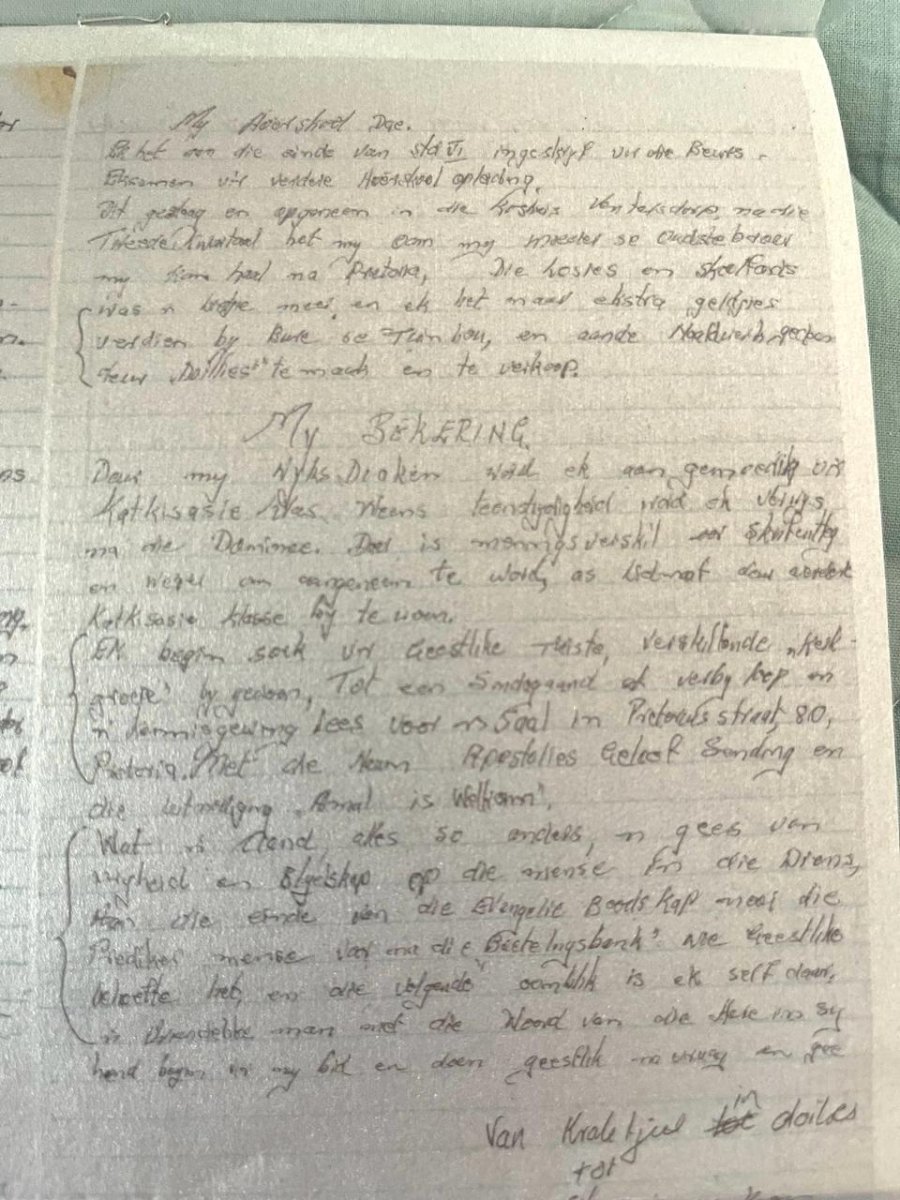 My Hoorskool Dae.
Ek het aan die einde van std VI ingeskryf vir die Beurs -
Eksamen vir verdere Hoorskool opleiding.
Dit geslaag en opgeneem in die Koshuis Ventersdorp, na die
Tweede Kwartaal het my oom my moeder se oudste broer
my kom haal na Pretoria, Die losies en skoolfonds
was n bietjie meer, en ek het maar ekstra geldjies
verdien by Bure se Tuin bou, en aande Naaldwerk
deur „Doilies" te maak en te verkoop.
My BEKERING.
Deur my Wyks Diaken word ek aan gemoedig vir
Katkisasie Klas. Weens teenstrydigheid word ek verwys
na die Dominee. Daar is meningsverskil oor
en weier om aangeneem te word, as Lidmaat deur
Katkisasie klasse by te woon.
Ek begin soek vir Geestelike Tuiste, verskillende „Kerk -
groepe" by gewoon, Tot een Sondagaand ek verby loop en
'n kennisgewing Lees voor n Saal in Pretorius straat, 80,
Pretoria. Met die Naam Apostoliese Geloof Sending en
die uitnodiging „Almal is Welkom".
Wat n Aand, alles so anders, n gees van
en Blydskap op die mense in die Diens,
Aan die einde van die Evangelie Boodskap nooi die
Prediker mense vorentoe na die wie Geestelike
behoefte het, en die volgende oomblik is ek self daar,
n vriendelike man met die Woord van die Here in sy
hand begin vir my bid en doen geestlik navraag en gee
Van Kraletjies tot in doilies
tot